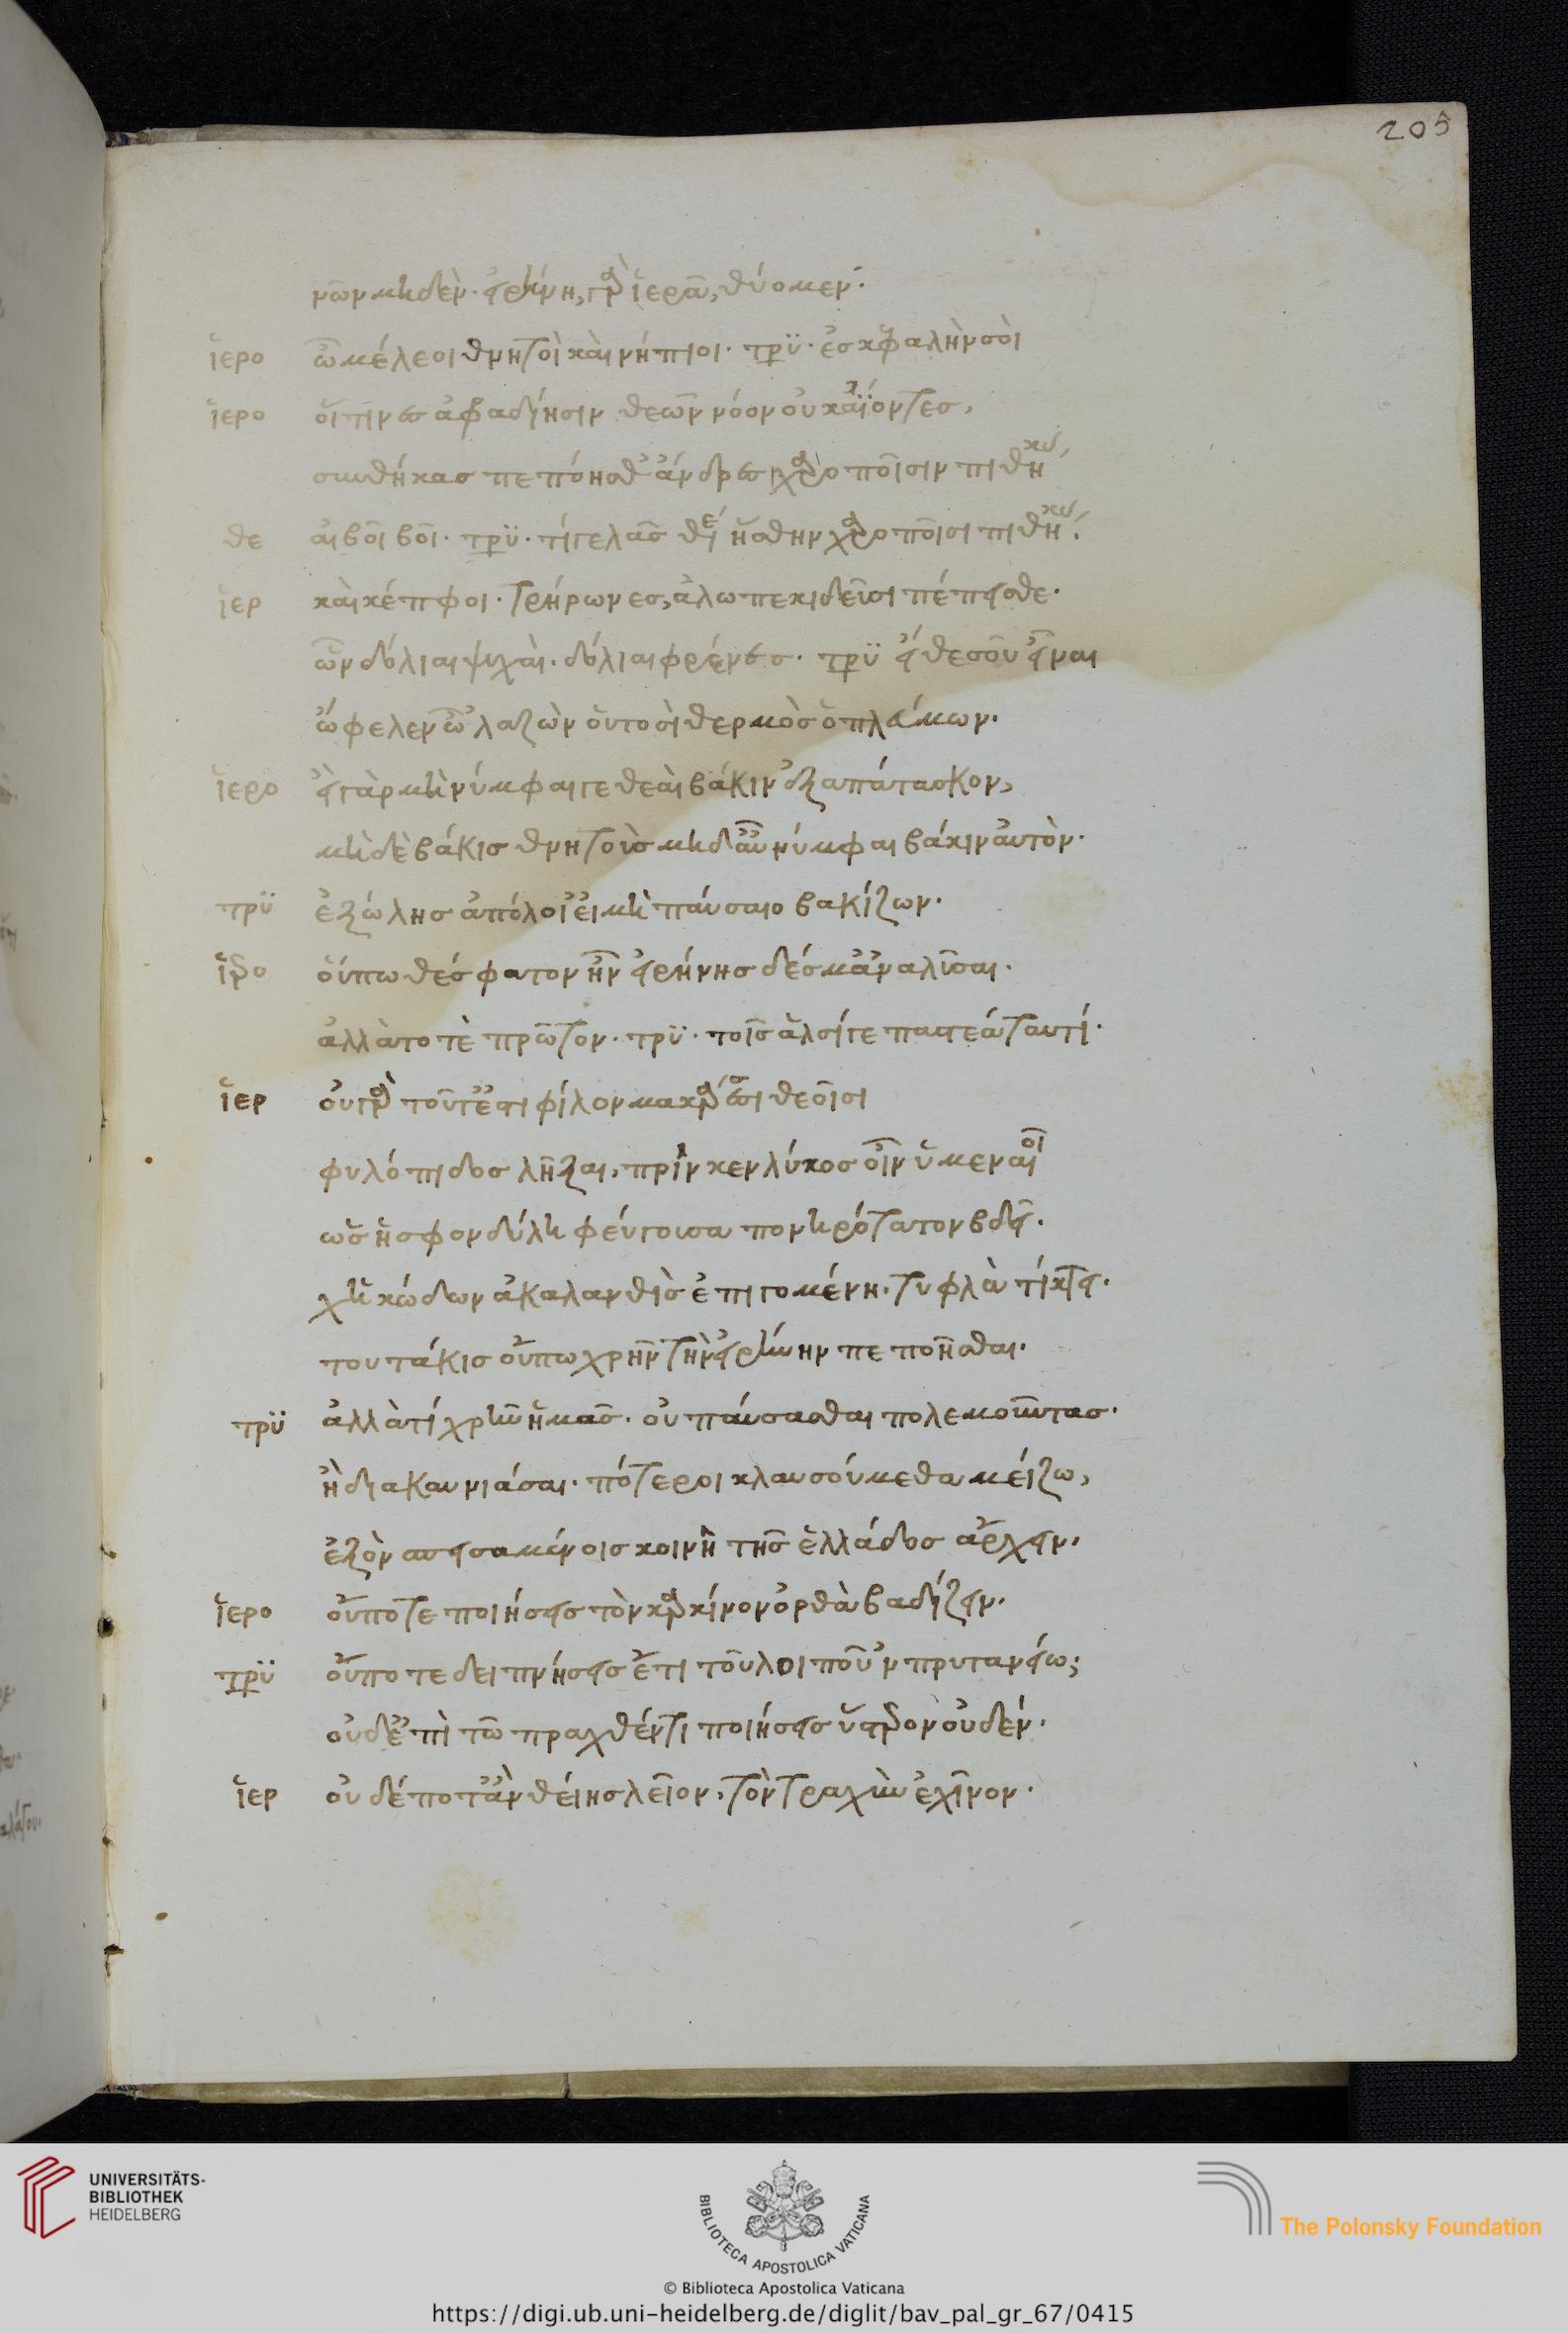 205
νῶν μηδὲν. εἰρήνη γὰρ ἱερὰ θύομεν.
ἱερο ὦ μέλεοι θνητοὶ καὶ νήπιοι. τρυ. ἐς κεφαλὴν σοὶ
ἱερο οἵτινες ἀφραδίῃσιν θεῶν νόον οὐκ ἀΐοντες,
συνθήκας πεπόησθ' ἄνδρες χαροποῖσιν πιθήκοις
θε αἰβοῖ βοῖ. τρυ. τί γελᾶς θε ἥσθην χαροποῖσι πιθήκοις.
ἱερ καὶ κέπφοι. τρήρωνες, ἀλωπεκιδεῖσι πέπεισθε.
ὧν δόλιαι ψυχαὶ. δόλιαι φρένες. τρυ εἴθε σοῦ εἶναι
ὤφελεν ὦ 'λαζὼν οὑτοσὶ θερμὸς ὁ πλεύμων.
ἱερο εἰ γὰρ μὴ νύμφαι γε θεαὶ βάκιν ἐξαπάτασκον,
μὴδὲ βάκις θνητοὺς μηδ' αὖ νύμφαι βάκιν αὐτὸν.
τρυ ἐξώλης ἀπόλοι' εἰ μὴ παύσαιο βακίζων.
ἱερο οὔπω θέσφατον ἦν εἰρήνης δέσμ' ἀναλῦσαι.
ἀλλὰ τοτὲ πρῶτον. τρυ. τοῖς ἁλσί γε παστέα ταυτί.
ἱερ οὐ γὰρ τοῦτ' ἐστὶ φίλον μακάρεσσι θεοῖσι
φυλόπιδος λῆξαι, πρίν κεν λύκος οἶν ὑμεναιοῖ
ὡς ἡ σφονδύλη φεύγουσα πονηρότατον βδεῖ.
χἡ κώδων ἀκαλανθὶς ἐπιγομένη. τυφλὰ τίκτει.
τουτάκις οὔπω χρῆν τὴν εἰρήνην πεποῆσθαι.
τρυ ἀλλὰ τί χρῆν ἡμᾶς. οὐ παύσασθαι πολεμοῦντας.
ἢ διακαυνιάσαι. πότεροι κλαυσούμεθα μείζω,
ἐξὸν σπεισαμένοις κοινῆ τῆς ἑλλάδος ἄρχειν.
ἱερο οὔποτε ποιήσεις τὸν καρκίνον ὀρθὰ βαδίζειν.
τρυ οὔποτε δειπνήσεις ἔτι τοῦ λοιποῦ 'ν πρυτανείω;
οὐδ' ἐπὶ τῶ πραχθέντι ποιήσεις ὕστερον οὐδέν.
ἱερ οὐδέποτ' ἂν θείης λεῖον, τὸν τραχὺν ἐχῖνον.
UNIVERSITÄTS-
BIBLIOTHEK
HEIDELBERG
BIBLIOTECA APOSTOLICA VATICANA
The Polonsky Foundation
© Biblioteca Apostolica Vaticana
https://digi.ub.uni-heidelberg.de/diglit/bav_pal_gr_67/0415